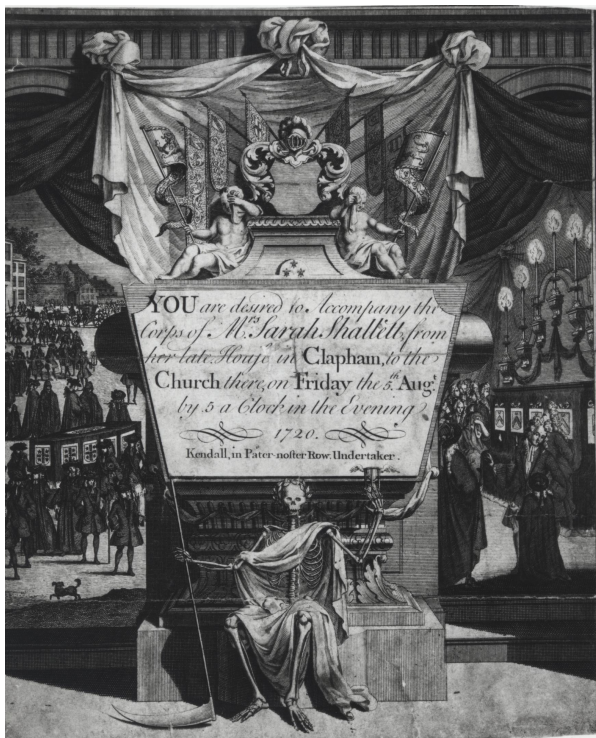 YOU are desired to Accompany the
Corps of Mrs. Sarah Shallett, from
her late House in Clapham, to the
Church there, on Friday the 5th Augt.
by 5 a Clock in the Evening
1720.
Kendall, in Pater-noster Row. Undertaker.